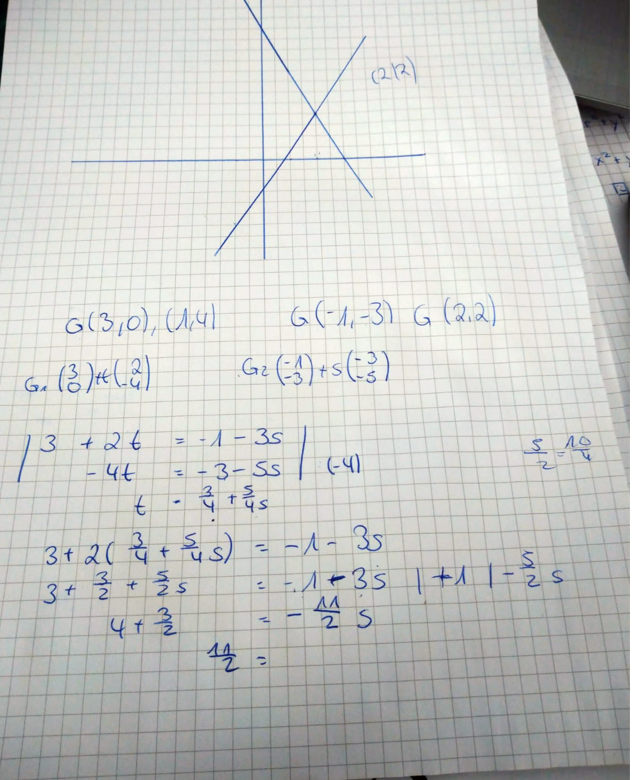 (2|2)
G(3,0), (1,4)    G(-1,-3) G(2,2)
G₁ (3 0)+t(2 -4)    G₂ (-1 -3)+s(-3 -5)
| 3 + 2t = -1 - 3s |
-4t = -3 - 5s | (-4)    5/2 = 10/4
t = 3/4 + 5/4 s
3 + 2(3/4 + 5/4 s) = -1 - 3s
3 + 3/2 + 5/2 s = -1 - 3s | +1 | - 5/2 s
4 + 3/2 = - 11/2 s
11/2 =